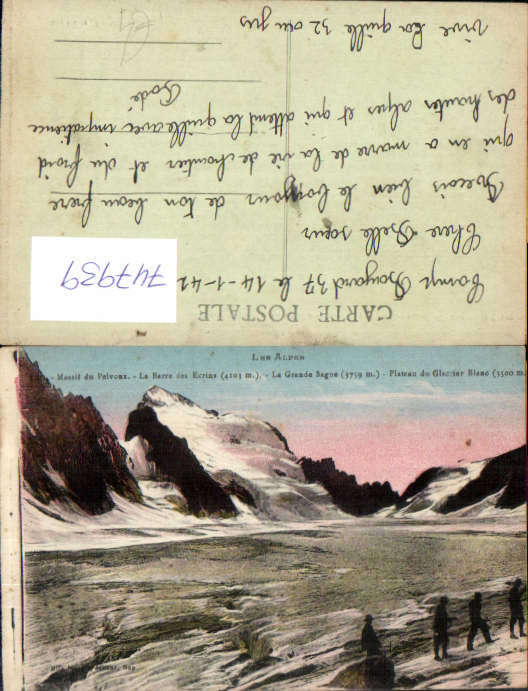 CARTE POSTALE
Camp Bayard 37 le 14-1-42
Chère Belle sœur
Reçois bien le bonjour de ton beau frère
qui en a marre de la vie de chantier et du froid
des hautes alpes et qui attend la quille avec impatience
Dédé
vive la quille 32 au jus
747939
LES ALPES
Massif du Pelvoux. - La Barre des Ecrins (4103 m.). - La Grande Sagne (3759 m.) - Plateau du Glacier Blanc (3500 m.
Gap